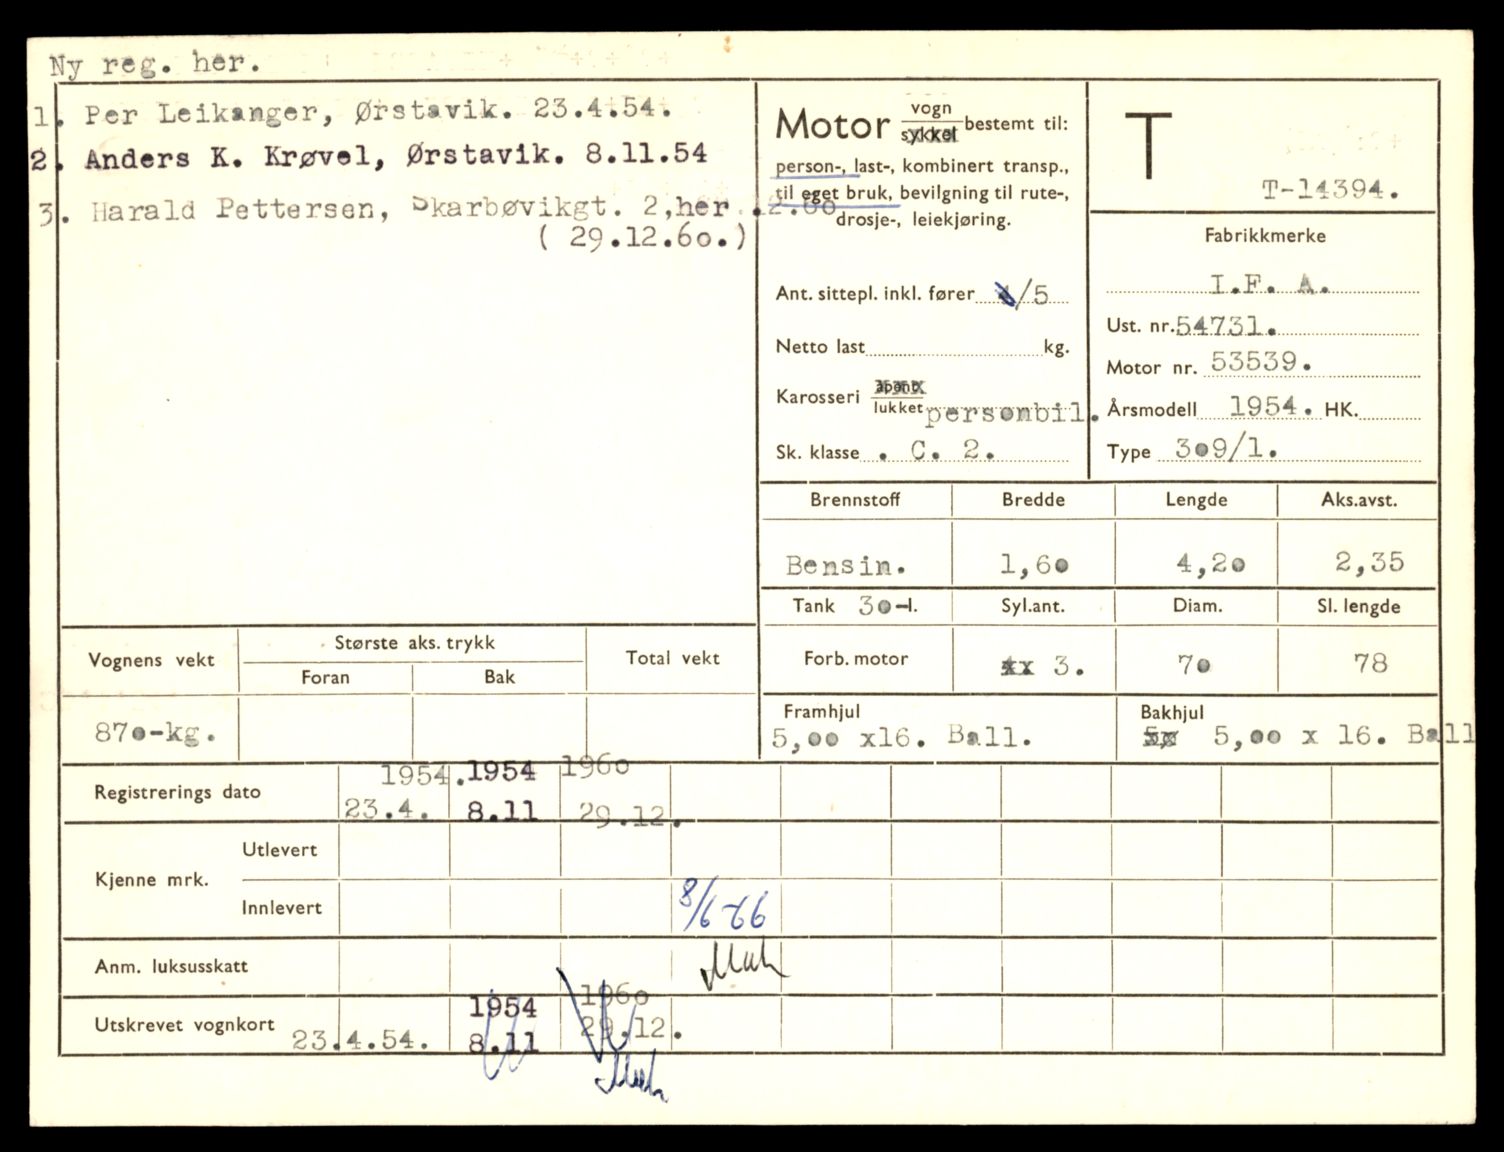 Ny reg. her.
1. Per Leikanger, Ørstavik. 23.4.54.
2. Anders K. Krøvel, Ørstavik. 8.11.54
3. Harald Pettersen, Skarbøvikgt. 2, her .12.60
( 29.12.60.)
Motor vogn
sykkel bestemt til:
person-, last-, kombinert transp.,
til eget bruk, bevilgning til rute-,
drosje-, leiekjøring.
Ant. sittepl. inkl. fører 4/5
Netto last kg.
Karosseri åpent
lukket personbil.
Sk. klasse . C. 2.
T
T-14394.
Fabrikkmerke
I.F. A.
Ust. nr. 54731.
Motor nr. 53539.
Årsmodell 1954. HK.
Type 309/1.
Brennstoff Bredde Lengde Aks.avst.
Bensin. 1,60 4,20 2,35
Tank 30-l. Syl.ant. Diam. Sl. lengde
Forb. motor 4x 3. 70 78
Framhjul Bakhjul
5,00 x16. Ball. 5x 5,00 x 16. Ball
Vognens vekt Største aks. trykk Total vekt
Foran Bak
870-kg.
1954. 1954 1960
Registrerings dato 23.4. 8.11 29.12.
Utlevert
Kjenne mrk.
Innlevert 8/6-66
Anm. luksusskatt
1954 1960
Utskrevet vognkort 23.4.54. 8.11 29.12.